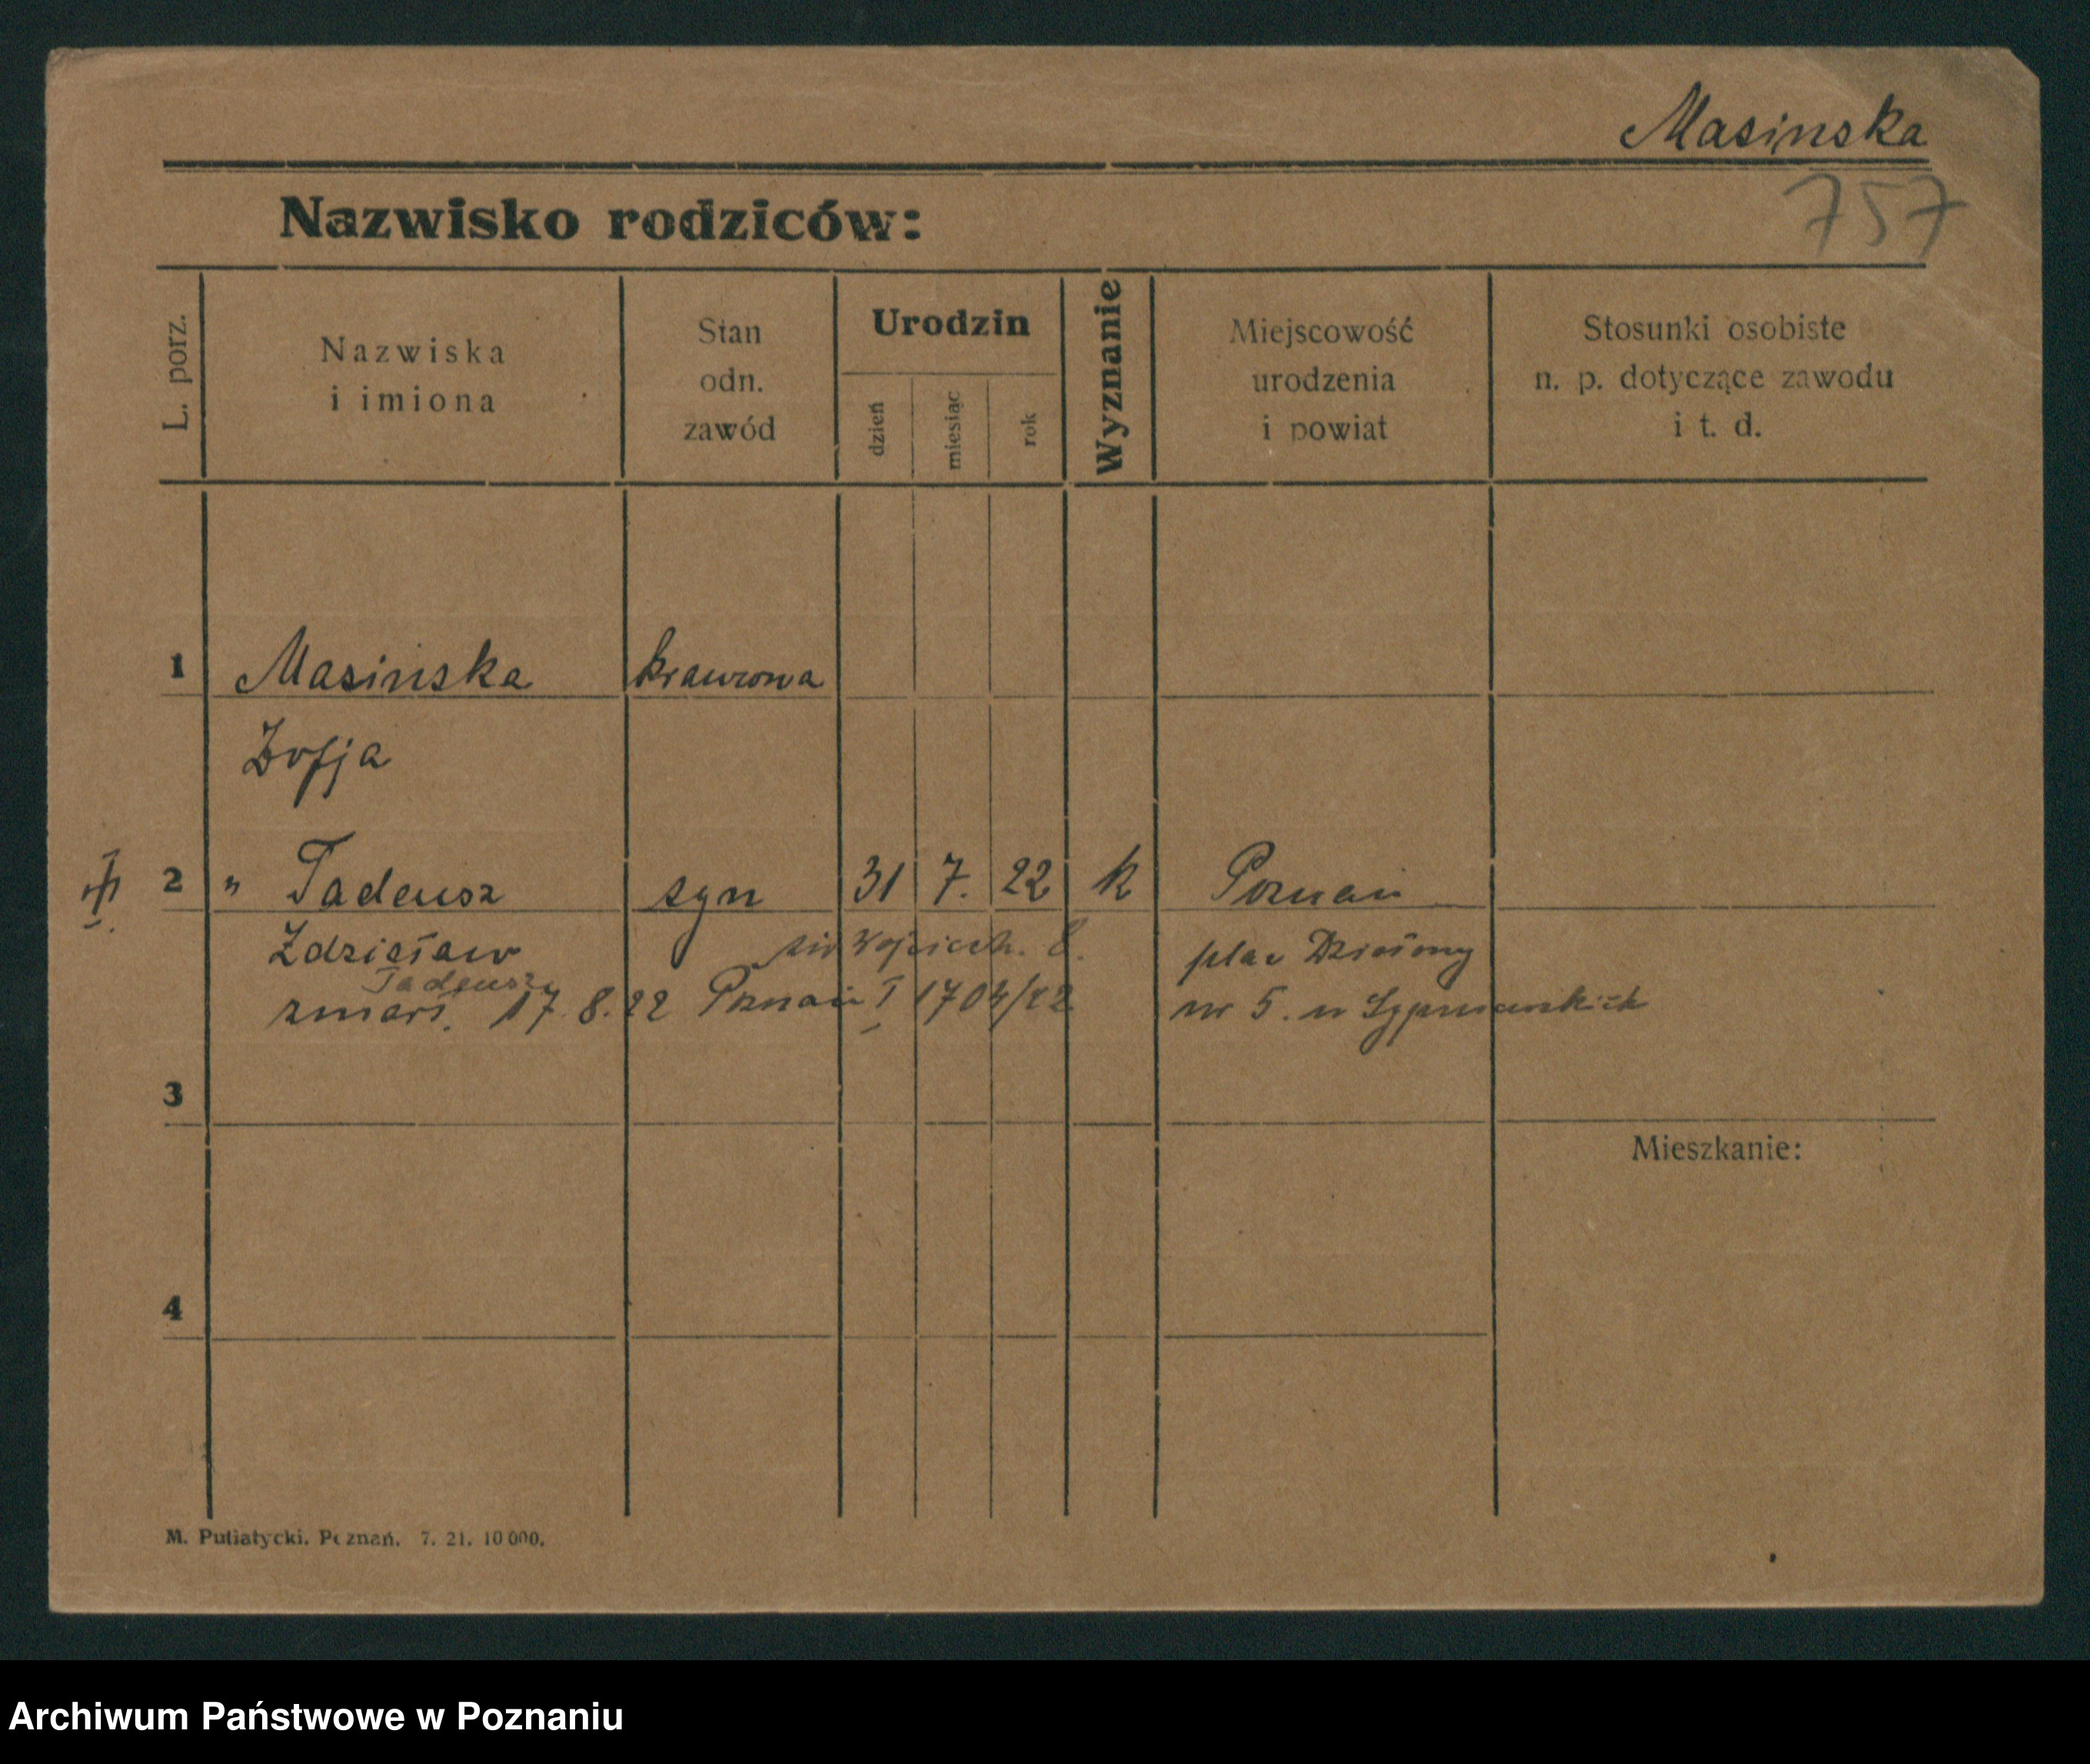 Masinska
757
Nazwisko rodziców:
L. porz.
Nazwiska
i imiona
Stan
odn.
zawód
Urodzin
dzień
miesiąc
rok
Wyznanie
Miejscowość
urodzenia
i powiat
Stosunki osobiste
n. p. dotyczące zawodu
i t. d.
1 Masinska krawcowa
Zofja
2 " Tadeusz syn 31 7. 22 k Poznań
Zdzisław Wojciech. 8. plac Działowy
Tadeusz
zmarł. 17.8.22 Poznań I 1704/22 nr 5. u
3
Mieszkanie:
4
M. Putiatycki. Poznań. 7. 21. 10 000.
Archiwum Państwowe w Poznaniu